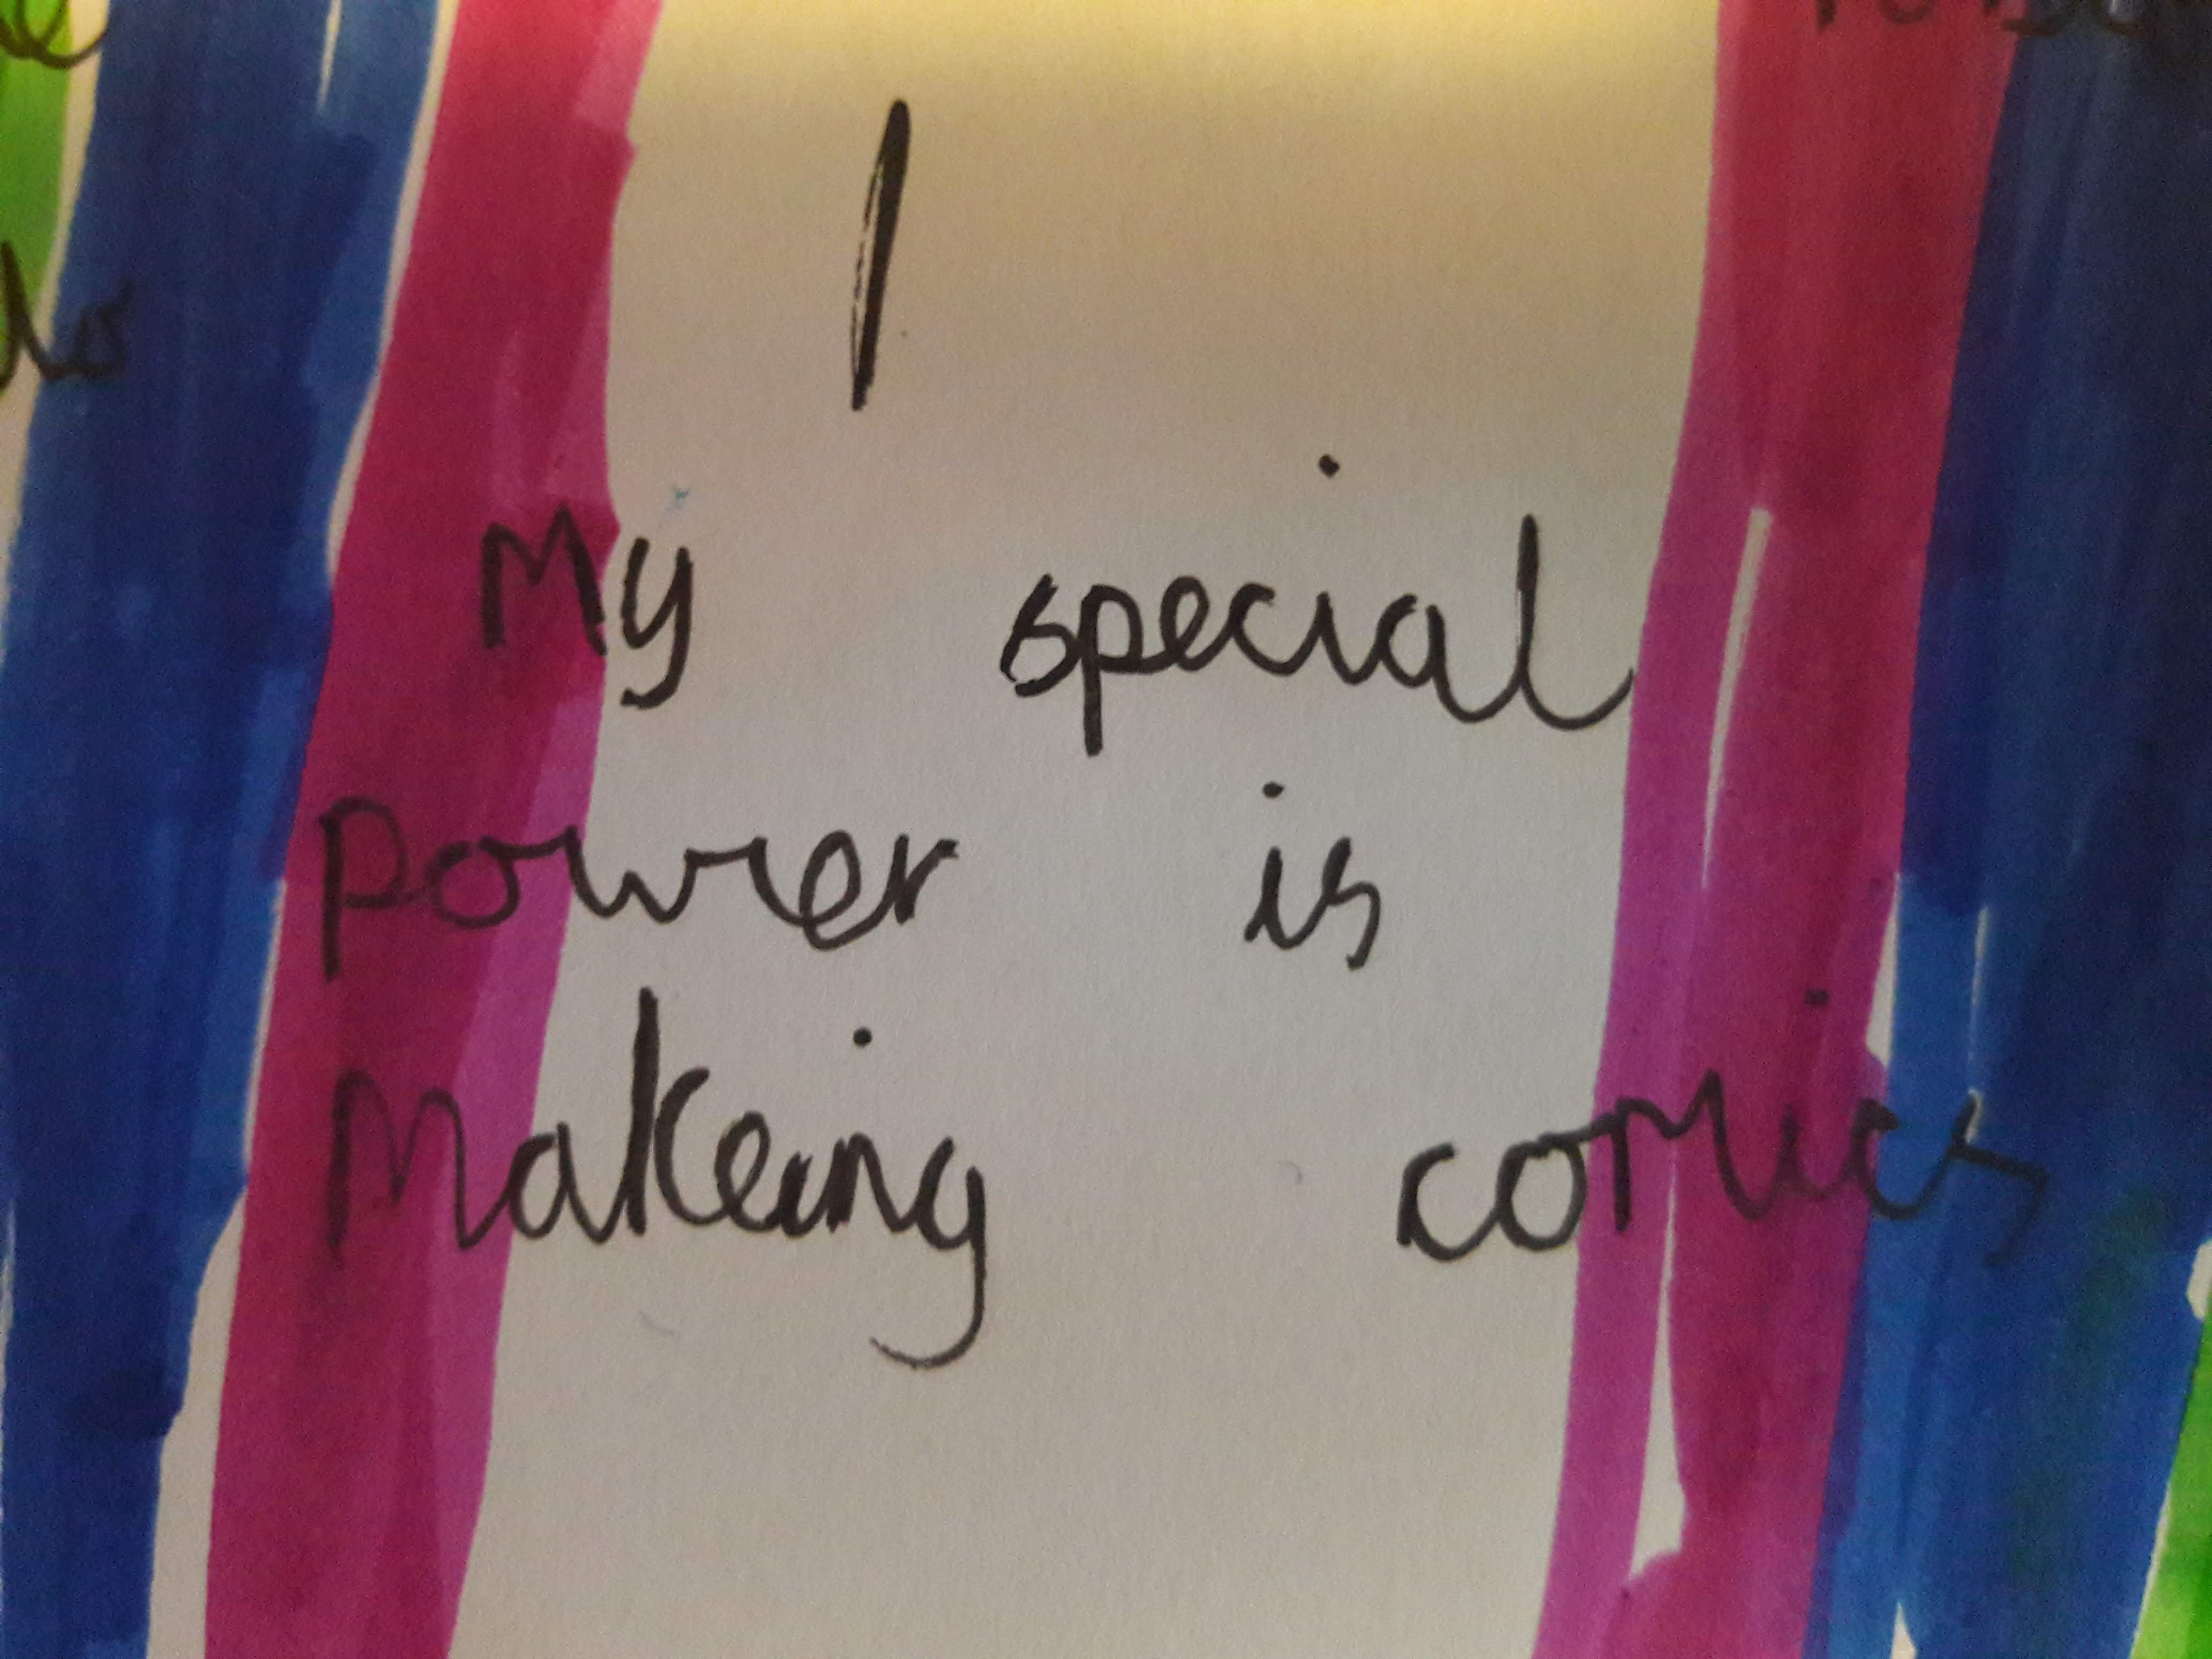 I
My special
power is
Makeing comics